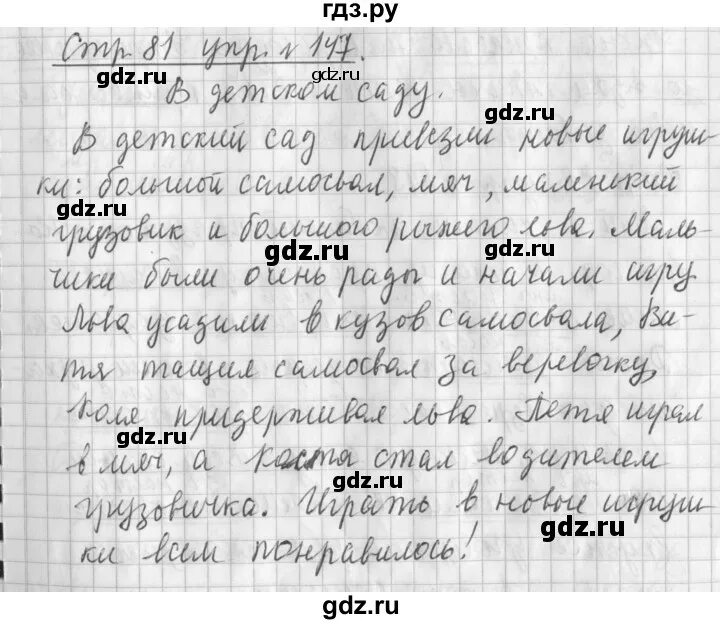 гдз.ру
Стр 81 упр. № 147.
gdz.ru gdz.ru
В детском саду.
gdz.ru
В детский сад привезли новые игруш-
ки: большой самосвал, мяч, маленький
gdz.ru
грузовик и большого рыжего льва. Маль-
gdz.ru gdz.ru
чики были очень рады и начали игру
Льва усадили в кузов самосвала, Ви-
gdz.ru
тя тащил самосвал за веревочку,
Коля придерживал льва. Петя играл
gdz.ru
в мяч, а Костя стал водителем
gdz.ru
грузовичка. Играть в новые игруш-
gdz.ru
ки всем понравилось!
gdz.ru